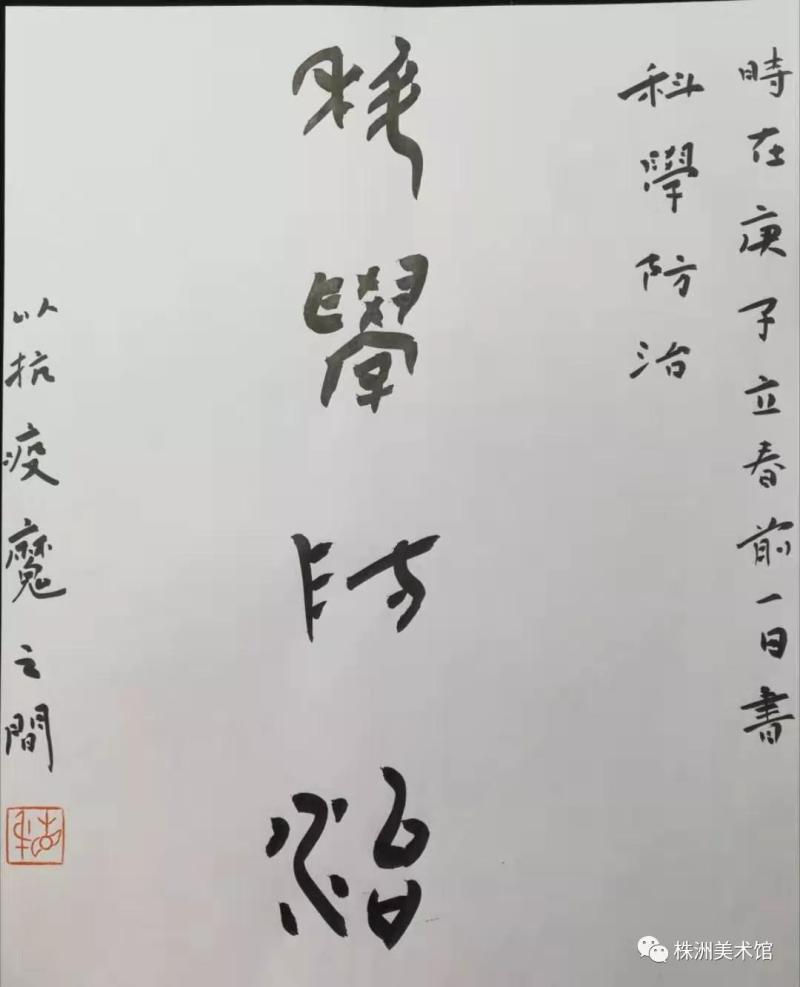 時在庚子立春前一日書
科學防治
科學防治
以抗疫魔之間
株洲美术馆